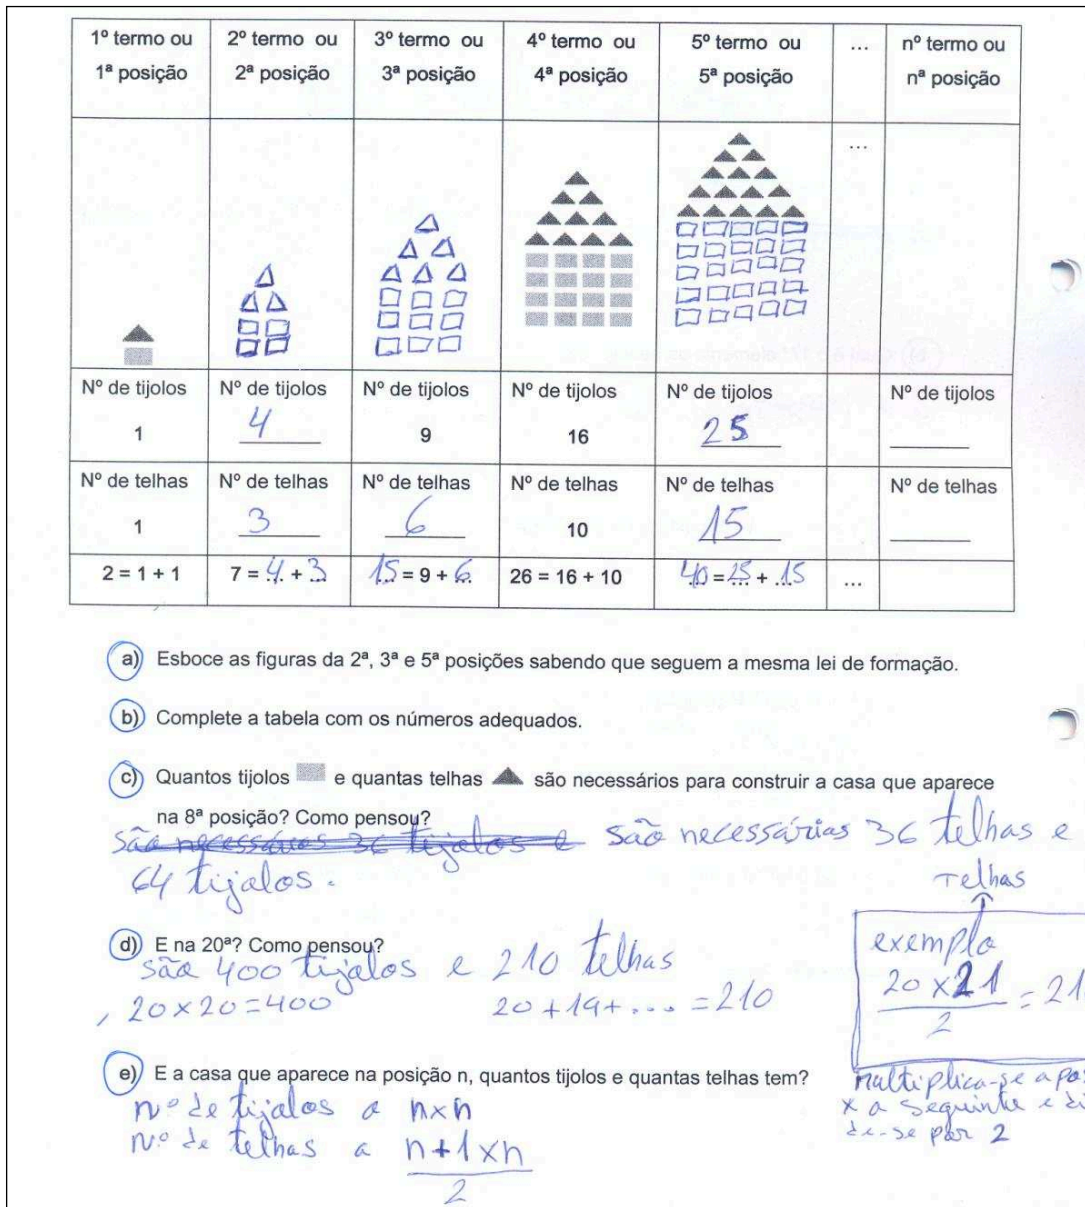 1º termo ou 2º termo ou 3º termo ou 4º termo ou 5º termo ou ... nº termo ou
1ª posição 2ª posição 3ª posição 4ª posição 5ª posição nª posição
...
Nº de tijolos Nº de tijolos Nº de tijolos Nº de tijolos Nº de tijolos Nº de tijolos
1 4 9 16 25 ______
Nº de telhas Nº de telhas Nº de telhas Nº de telhas Nº de telhas Nº de telhas
1 3 6 10 15 ______
2 = 1 + 1 7 = 4 + 3 15 = 9 + 6 26 = 16 + 10 40 = 25 + 15 ...
a) Esboce as figuras da 2ª, 3ª e 5ª posições sabendo que seguem a mesma lei de formação.
b) Complete a tabela com os números adequados.
c) Quantos tijolos e quantas telhas são necessários para construir a casa que aparece
na 8ª posição? Como pensou?
são necessários 36 tijalos e são necessárias 36 telhas e
64 tijalos.
d) E na 20ª? Como pensou?
são 400 tijalos e 210 telhas
, 20 x 20 = 400 20 + 19 + ... = 210
Telhas
exemplo
20 x 21
2
= 21
Multiplica-se a
x a seguinte e
de-se por 2
e) E a casa que aparece na posição n, quantos tijolos e quantas telhas tem?
nº de tijalos a n x n
nº de telhas a n + 1 x n
2